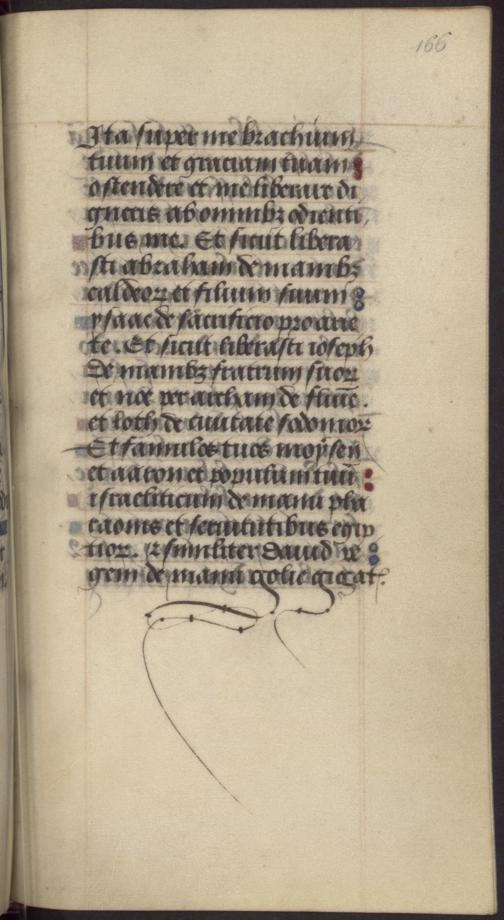 166
Ita super me brachium
tuum et graciam tuam
ostendere et me liberare di
gneris ab omnibꝫ odienti
bus me. Et sicut libera
sti abraham de manibꝫ
caldeoꝝ et filium suum
ysaac de sacrificio pro arie
te. Et sicut liberasti ioseph
de manibꝫ fratrum suoꝝ
et noe per archam de fluuē.
et loth de ciuitate sodomoꝝ
Et famulos tuos moÿsen
et aaron et populum tuū
israeliticum de manu pha
raonis et seruitutibus egip
tioꝝ. ⁊ similiter dauid re
gem de manu golie gigāt.